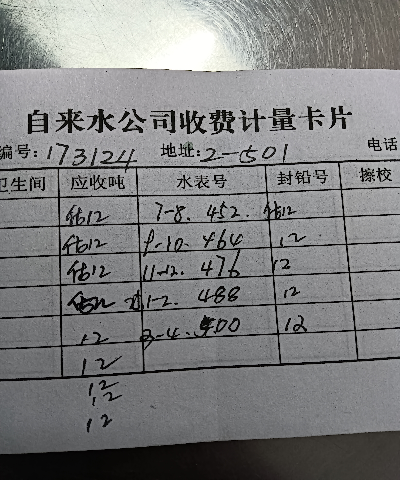 自来水公司收费计量卡片
编号:173124 地址:2-501 电话
卫生间 应收吨 水表号 封铅号 擦校
估12 7-8. 452. 估12
估12 9-10. 464 12
估12 11-12. 476 12
估12 1-2. 488 12
12 3-4. 500 12
12
12
12
12